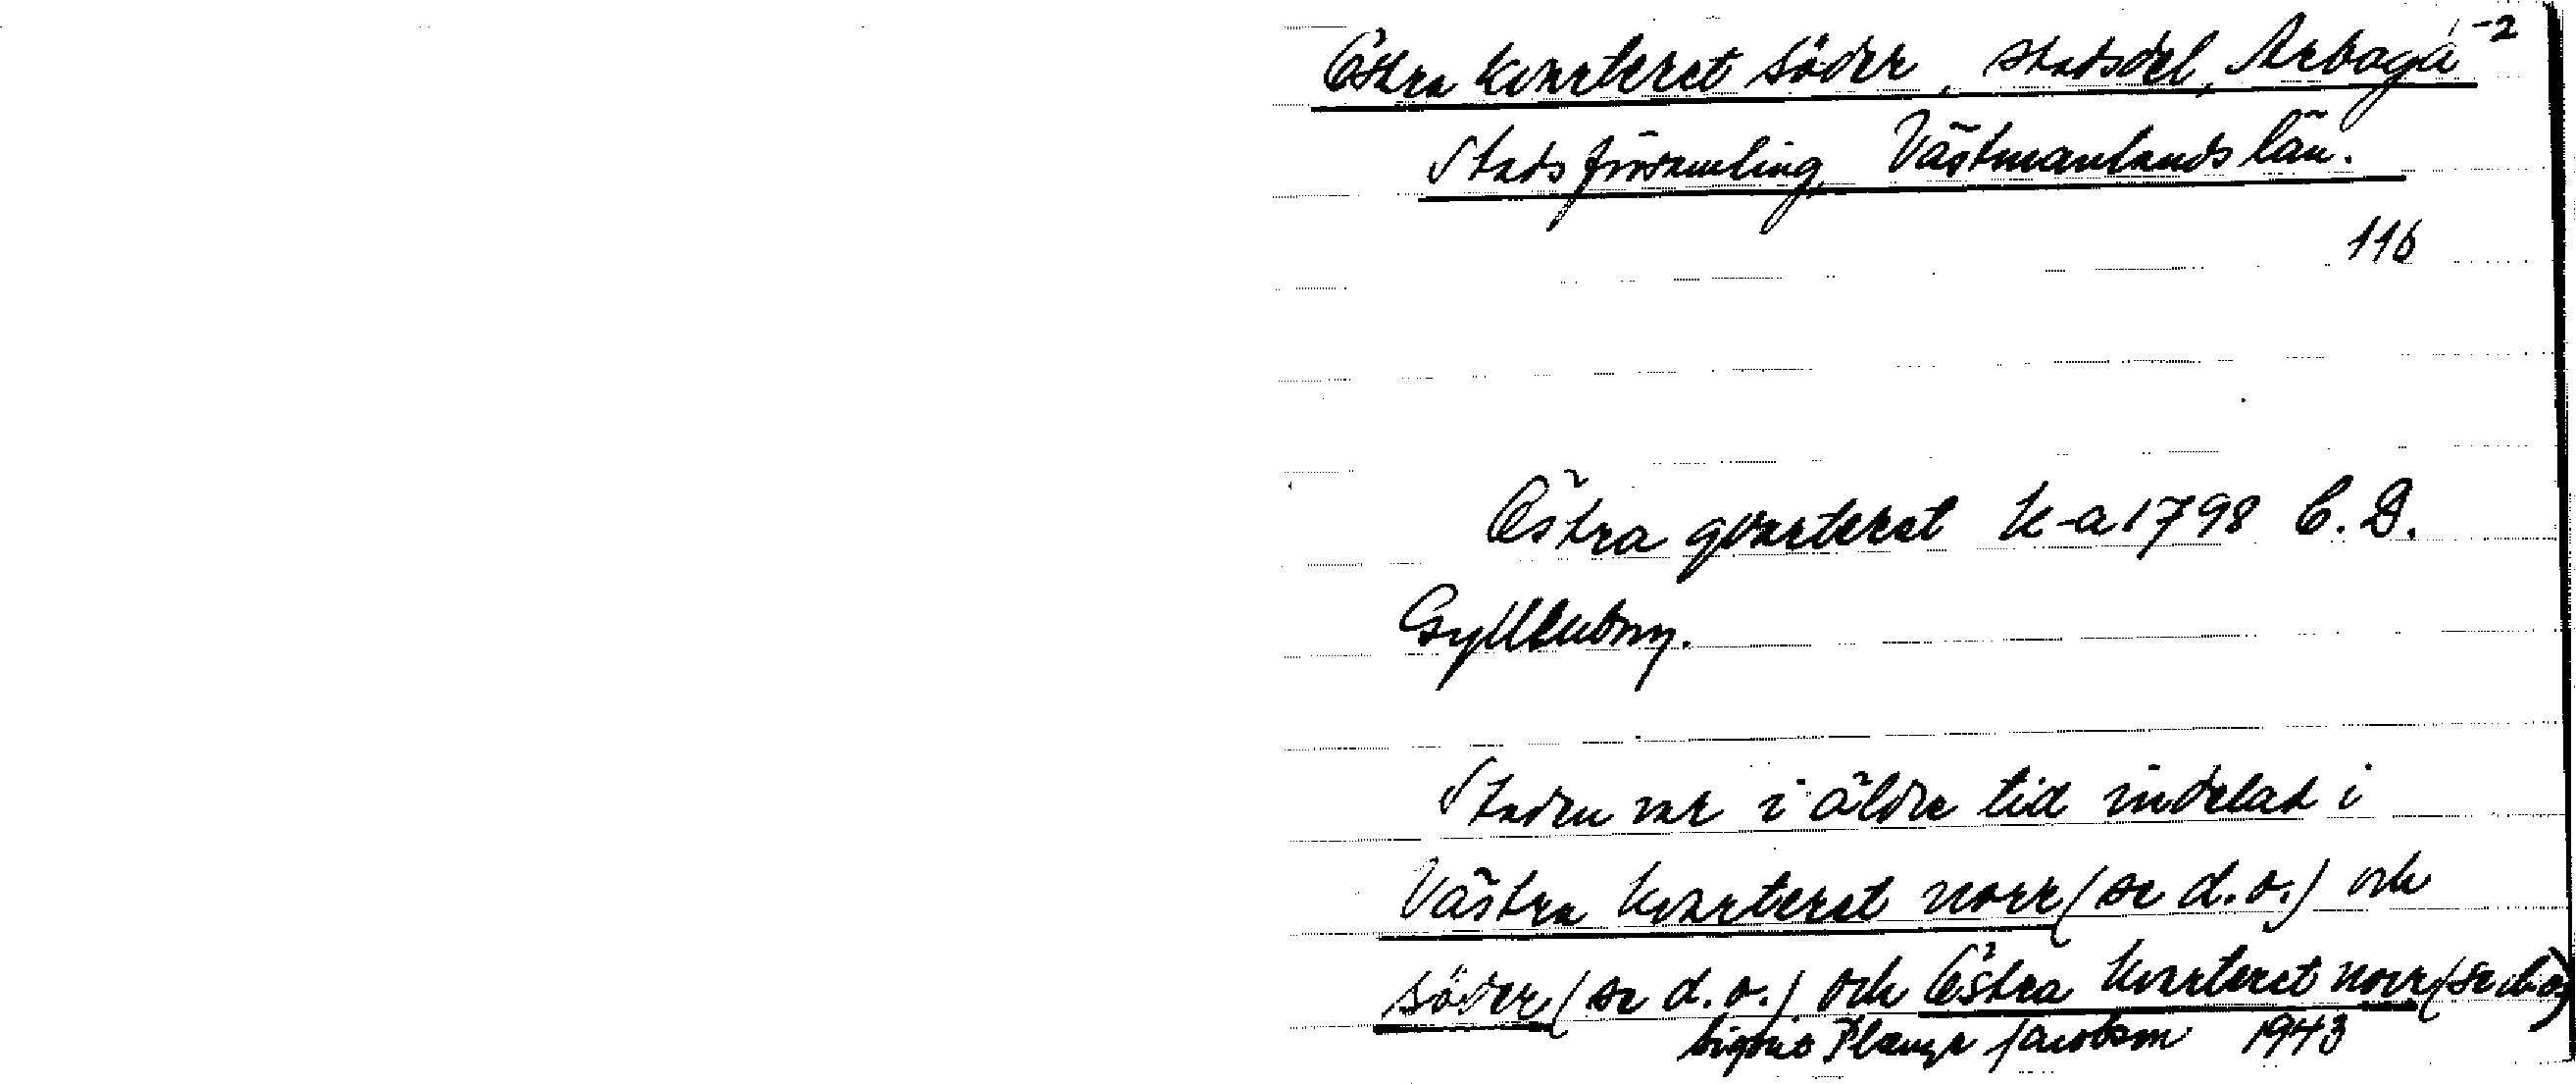 Östra kvarteret söder, stadsdel, Arboga -2
Stadsförsamling, Västmanlands län.
116
Östra qvarteret k-a 1798 C. D.
Gyllenborg.
Staden var i äldre tid indelad i
Västra kvarteret norr (se d.o.) och
söder (se d.o.) och Östra kvarteret norr (se d.o.)
Sigrid Jacobson 1943